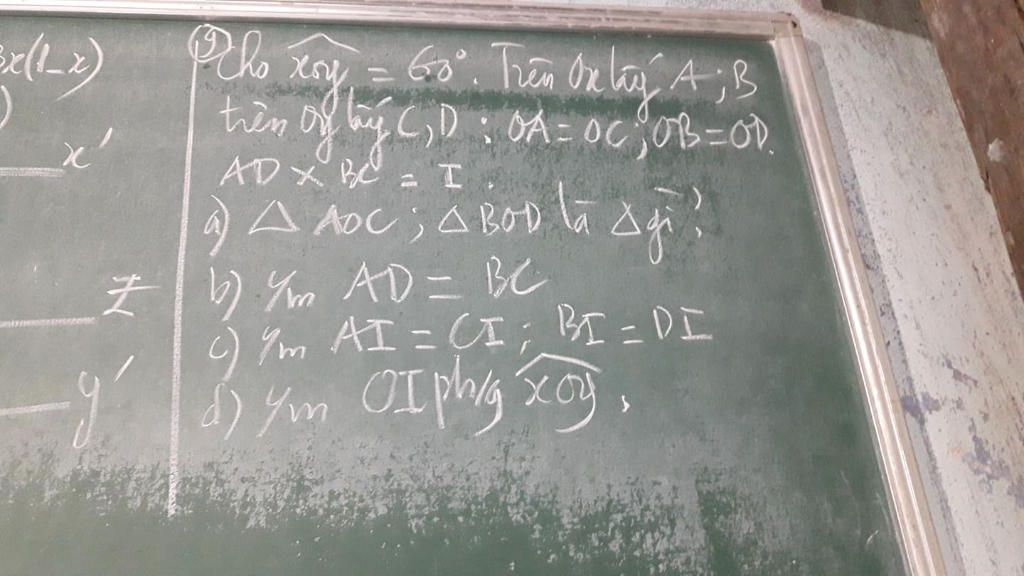 3x(1-x)
)
x'
z
y'
9) Cho xoy = 60°. Trên Ox lấy A; B
trên Oy lấy C, D : OA = OC; OB = OD.
AD × BC = I.
a) △ AOC ; △ BOD là △ gì?
b) Cm AD = BC
c) Cm AI = CI ; BI = DI
d) Cm OI ph/g xoy.